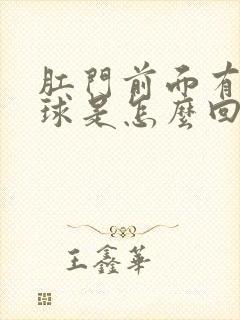 肛門前面有
球是怎麼回
王鑫華